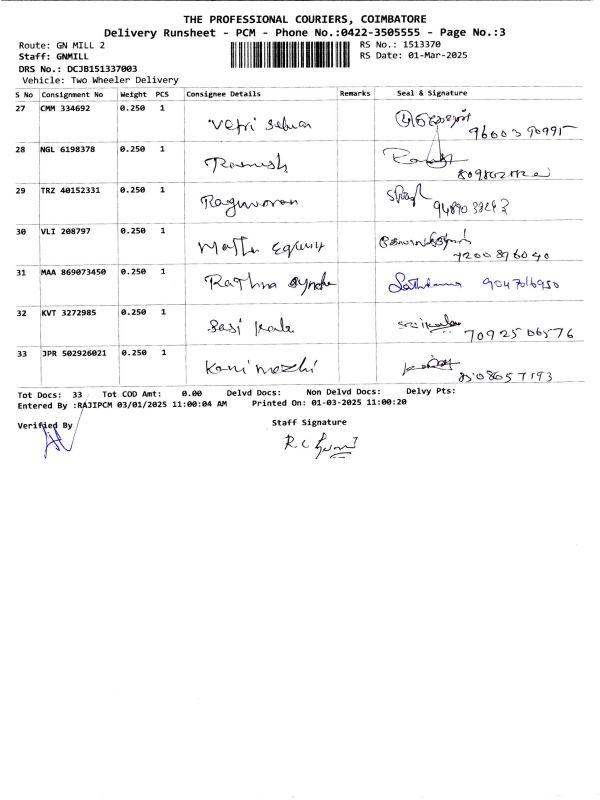 THE PROFESSIONAL COURIERS, COIMBATORE
Delivery Runsheet - PCM - Phone No.:0422-3505555 - Page No.:3
Route: GN MILL 2
RS No.: 1513370
Staff: GNMILL
RS Date: 01-Mar-2025
DRS No.: DCJB151337003
Vehicle: Two Wheeler Delivery
S No Consignment No Weight PCS Consignee Details Remarks Seal & Signature
27 CMM 334692 0.250 1
Vetri Selvan
9600390995
28 NGL 6198378 0.250 1
Ramesh
29 TRZ 40152331 0.250 1
Raguvaran
30 VLI 208797 0.250 1
7200896040
31 MAA 869073450 0.250 1
Rathna
9047016950
32 KVT 3272985 0.250 1
Sasi kala
7092506576
33 JPR 502926021 0.250 1
Kanimozhi
8508657193
Tot Docs: 33 Tot COD Amt: 0.00 Delvd Docs: Non Delvd Docs: Delvy Pts:
Entered By :RAJIPCM 03/01/2025 11:00:04 AM Printed On: 01-03-2025 11:00:20
Verified By
Staff Signature